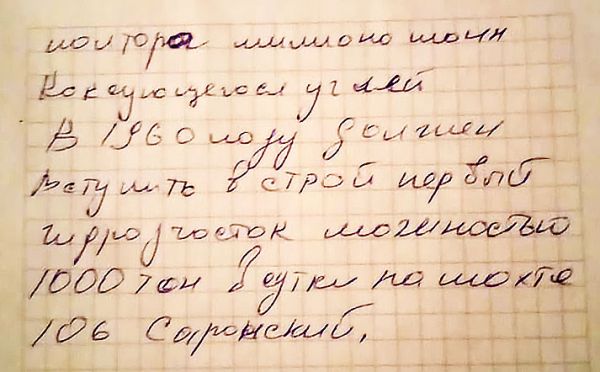 полтора милиона тонн
Коксующегося углей
В 1960 году должен
вступить в строй первый
гидроучасток мощностью
1000 тон в сутки на шахте
106 Саранский.